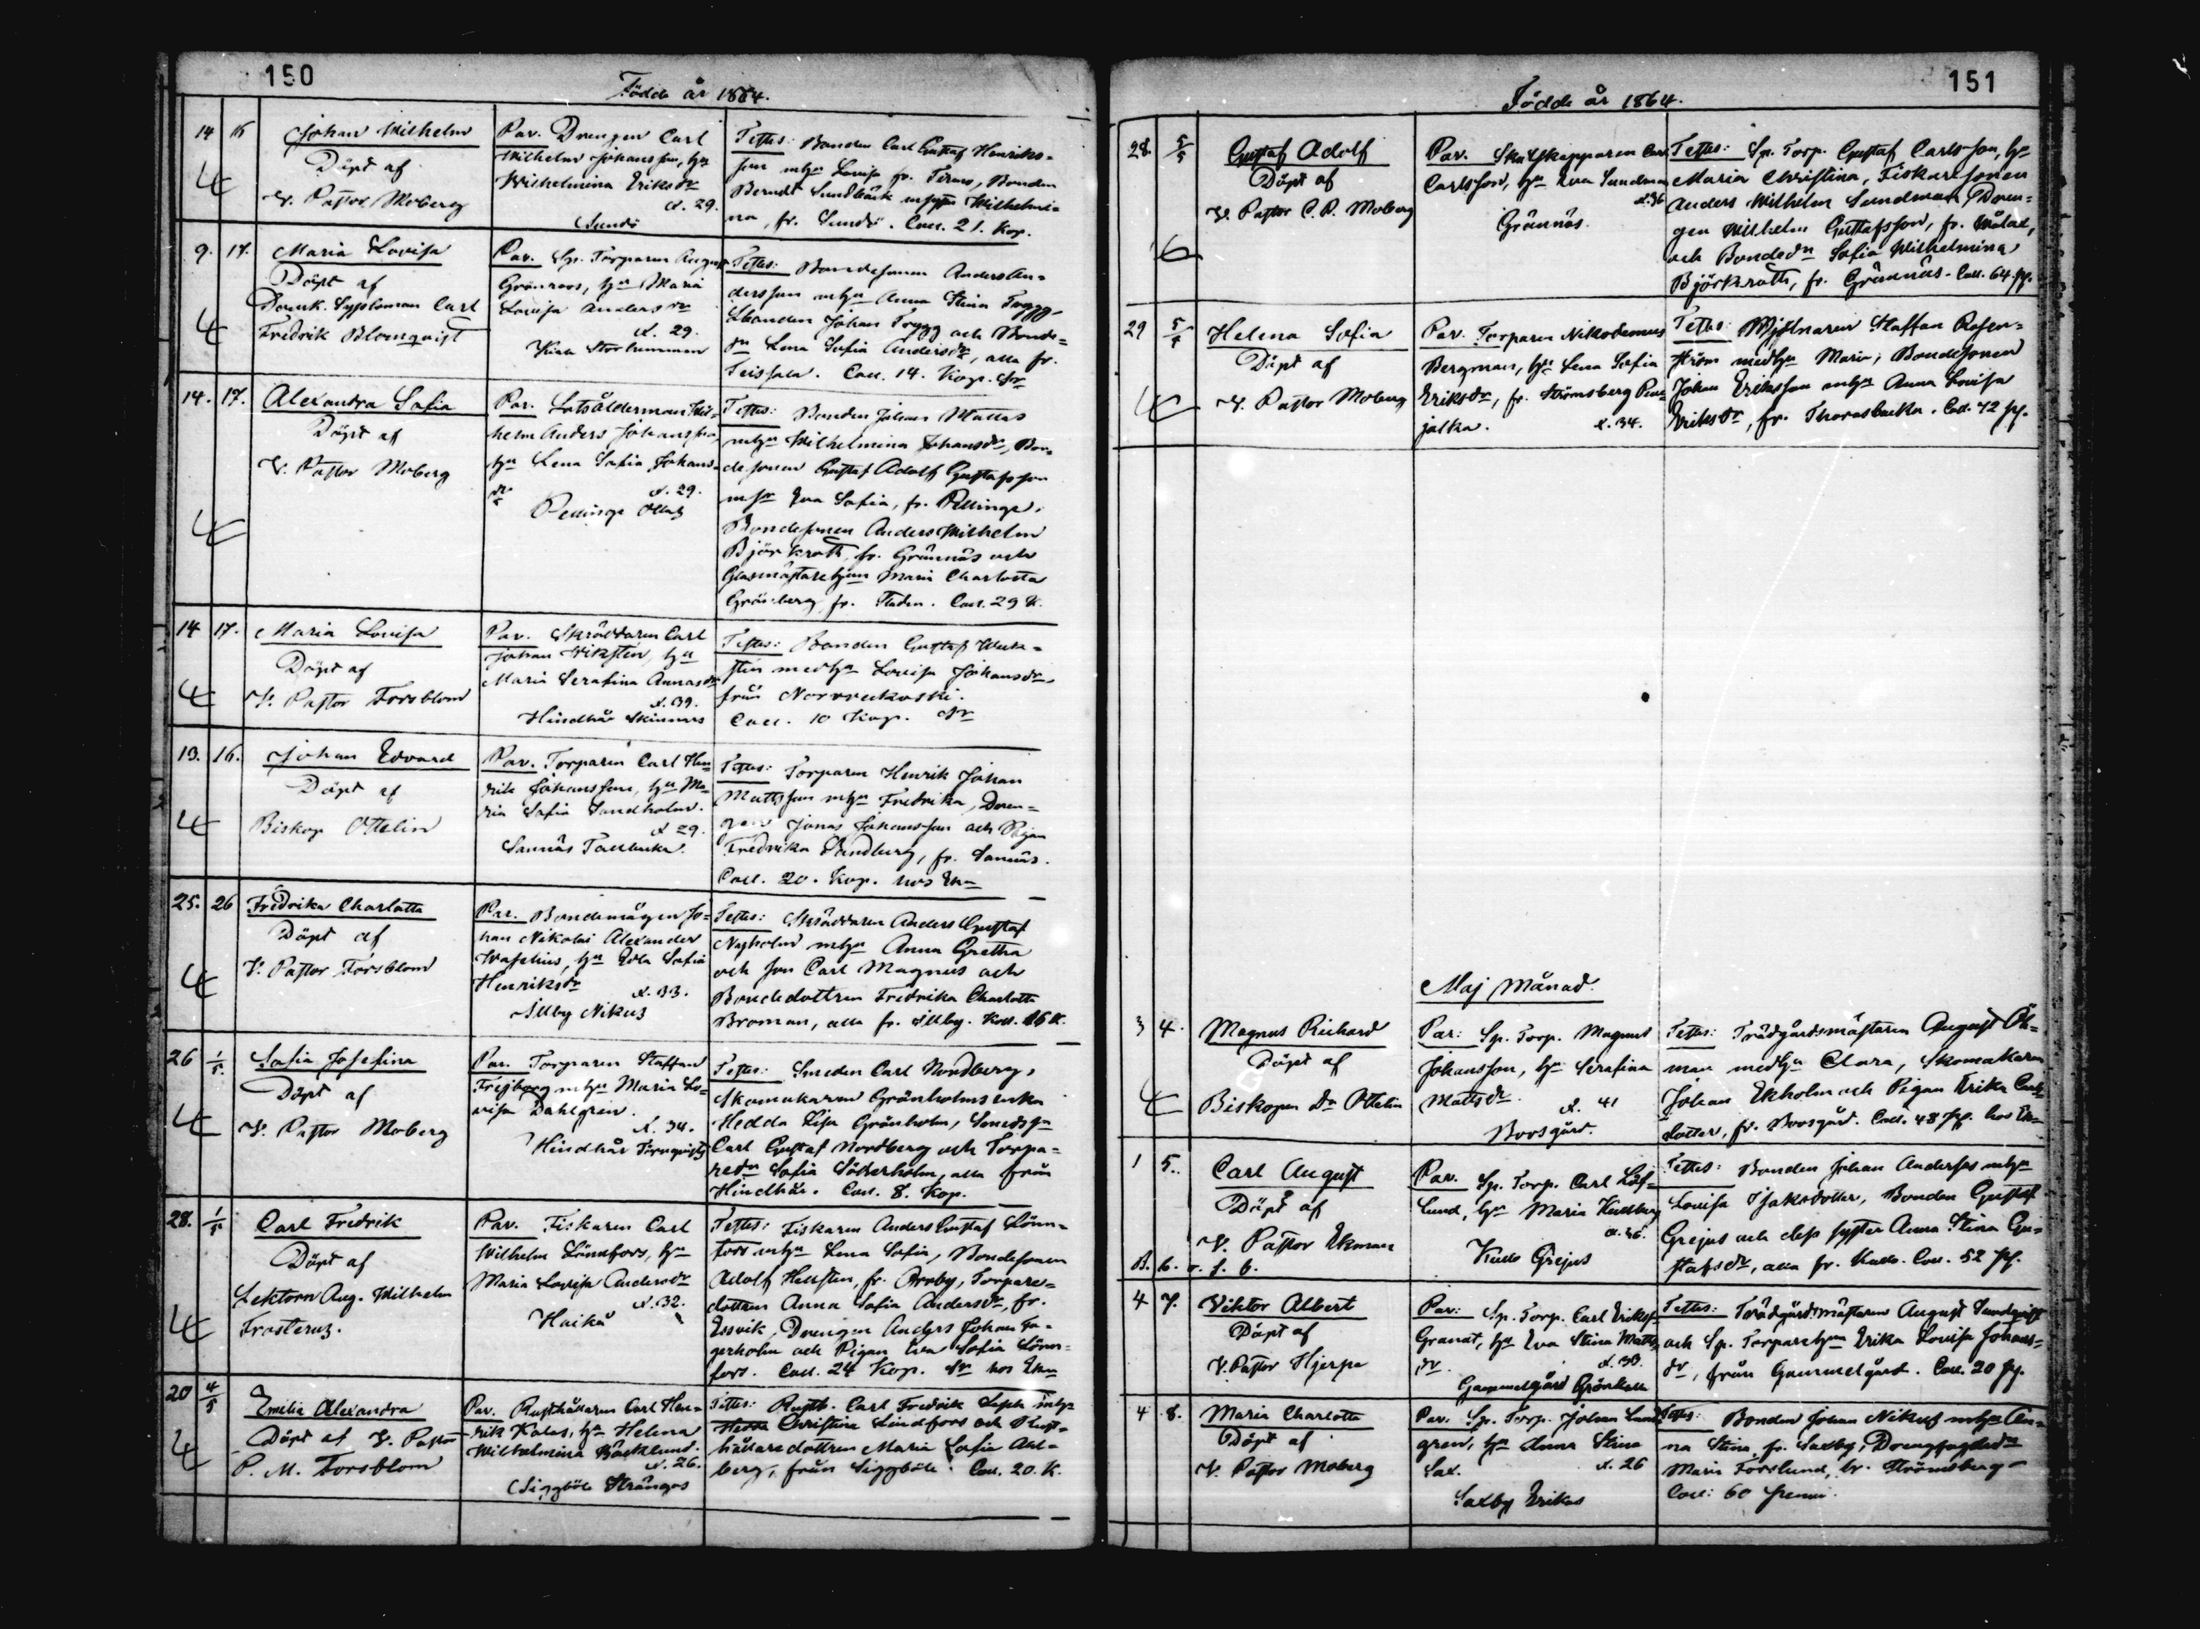 150
Födde år 1864.
14 16
Johan Wilhelm
Döpt af
V. Pastor Moberg
Par. Drengen Carl
Wilhelm Johansson, hu
Wilhelmina Eriksdr
æ. 29.
Sundö
Testes: Bonden Carl Gustaf Henriks-
son mhu Lovisa fr. Tirmo, Bonden
Berndt Sundbäck mhu Wilhelmi-
na, fr. Sundö. Coll. 21. Kop.
9. 17.
Maria Lovisa
Döpt af
Domk. Sysloman Carl
Fredrik Blomqvist
Par. Sp. Torparen August
Grönroos, hu Maria
Lovisa Andersdr
æ. 29.
Testes: Bondesonen Anders An-
dersson mhu Anna Stina Trygg,
bonden Johan Trygg och Bonde-
dr Lena Sofia Andersdr, alla fr.
Teissala. Coll. 14. Kop. Sr
14. 17.
Alexandra Sofia
Döpt af
V. Pastor Moberg
Par. Lotsålderman Wil-
helm Anders Johansson,
hu Lena Sofia Johans-
dr
æ. 29.
Pellinge
Testes: Bonden Johan Mattas
mhu Wilhelmina Johansdr, Bon-
desonen Gustaf Adolf Gustafsson
m hu Eva Sofia, fr. Pellinge,
Bondesonen Anders Wilhelm
Björkroth, fr. Grännäs och
Glasmästarehun Maria Charlotta
Grönberg, fr. Staden. Coll. 29 K.
14 17.
Maria Lovisa
Döpt af
V. Pastor Forsblom
Par. Skräddaren Carl
Johan Wikstén, hu
Maria Serafina Annasdr
æ. 39.
Hindhår Skinnars
Testes: Bonden Gustaf Weck-
stén medhu Lovisa Johansdr,
från Norrveckoski.
Coll. 10 Kop. Sr
13. 16.
Johan Edvard
Döpt af
Biskop Ottelin
Par. Torparen Carl Hen
rik Johansson, hu Ma-
ria Sofia Sandholm.
æ 29.
Sannäs Tallbacka.
Testes: Torparen Henrik Johan
Mattsson mhu Fredrika, Dren-
gen Jonas Johansson och Pigan
Fredrika Sandberg, fr. Sannäs.
Coll. 20. Kop. hos Ekm
25. 26
Fredrika Charlotta
Döpt af
V. Pastor Forsblom
Par. Bondemågen Jo-
han Nikolai Alexander
Waselius, hu Edla Sofia
Henriksdr
æ. 33.
Illby Nikus
Testes: Skräddaren Anders Gustaf
Nyholm mhu Anna Gretha
och son Carl Magnus och
Bondedottren Fredrika Charlotta
Broman, alla fr. Illby. Koll. 16 K.
26 1/5.
Sofia Josefina
Döpt af
V. Pastor Moberg
Par. Torparen Staffan
Frejborg mhu Maria Lo-
visa Dahlgren.
æ. 34.
Hindhår Törnqvists
Testes: Smeden Carl Nordberg,
Skomakaren Grönholms enka
Hedda Lisa Grönholm, Smedsgn
Carl Gustaf Nordberg och Torpa-
redr Sofia Söderholm, alla från
Hindhår. Coll. 8. Kop.
28. 1/5
Carl Fredrik
Döpt af
Lektorn Aug. Wilhelm
Frosterus.
Par. Fiskaren Carl
Wilhelm Lönnfors, hu
Maria Lovisa Andersdr
æ. 32.
Haikå
Testes: Fiskaren Anders Gustaf Lönn-
fors mhu Lena Sofia, Bondesonen
Adolf Hellsten, fr. Orrby, Torpare-
dottren Anna Sofia Andersdr, fr.
Essvik, Drengen Anders Johan Fa-
gerholm och Pigan Eva Sofia Lönn-
fors. Coll. 24 Kop. Sr hos Ekm
20 4/5
Emelia Alexandra
Döpt af V. Pastor
P. M. Forsblom
Par. Rusthållaren Carl Hen-
rik Kalas, hu Helena
Wilhelmina Bäcklund.
æ. 26.
Siggböle Strånges
Testes: Rusth. Carl Fredrik mhu
Christina Lindfors och Rust-
hållaredottren Maria Sofia Ahl-
berg, från Siggböle. Coll. 20. K.
151
Födde år 1864.
28. 5/5
Gustaf Adolf
Döpt af
V. Pastor C. R. Moberg
Par. Skalskapparen Carl
Carlsson, hu Eva Sundman
æ. 36
Grännäs.
Testes: Sp. Torp. Gustaf Carlsson, hu
Maria Christina, Fiskaresonen
Anders Wilhelm Sundman, Dren-
gen Wilhelm Gustafsson, fr. Wålax,
och Bondedr Sofia Wilhelmina
Björkroth, fr. Grännäs. Coll. 64. p.
29 5/5
Helena Sofia
Döpt af
V. Pastor Moberg
Par. Torparen Nikodemus
Bergman, hu Lena Sofia
Eriksdr, fr. Strömsberg Pen-
jalka.
æ. 34.
Testes: Mjölnaren Staffan Rosen-
ström medhu Maria, Bondesonen
Johan Eriksson mhu Anna Lovisa
Eriksdr, fr. Thorasbacka. Coll. 72 p.
Maj Månad.
3 4.
Magnus Richard
Döpt af
Biskopen Dr Ottelin
Par: Sp. Torp. Magnus
Johansson, hu Serafina
Mattsdr.
æ. 41
Boosgård.
Testes: Trädgårdsmästaren August Ök-
man medhu Clara, Skomakaren
Johan Ekholm och Pigan Erika Carls
dotter, fr. Boosgård. Coll. 48 p. hos Ekm
1 5.
Carl August
Döpt af
V. Pastor Ekman
B. 6. v. s. 6.
Par. Sp. Torp. Carl Löf-
lund, hu Maria Kindberg
æ. 36.
Kullo Grejus
Testes: Bonden Johan Anderses mhu
Lovisa Isaksdotter, Bonden Gustaf
Grejus och dess syster Anna Stina Gu-
stafsdr, alla fr. Kullo. Coll. 52 p.
4 7.
Viktor Albert
Döpt af
V. Pastor Hjerpe
Par: Sp. Torp. Carl Eriksf
Granat, hu Eva Stina Matts-
dr.
æ. 30.
Gammelgård Grönkulla
Testes: Trädgårdsmästaren August Sundqvist
och Sp. Torparehun Erika Lovisa Johans-
dr, från Gammelgård. Coll. 20 p.
4 8.
Maria Charlotta
Döpt af
V. Pastor Moberg
Par. Sp. Torp. Johan Lund
gren, hu Anna Stina
Sax.
æ. 26
Saxby Erikas
Testes: Bonden Johan Nikus mhu An-
na Stina, fr. Saxby, Drengfogdedr
Maria Forslund, fr. Strömsberg
Coll: 60 penni.